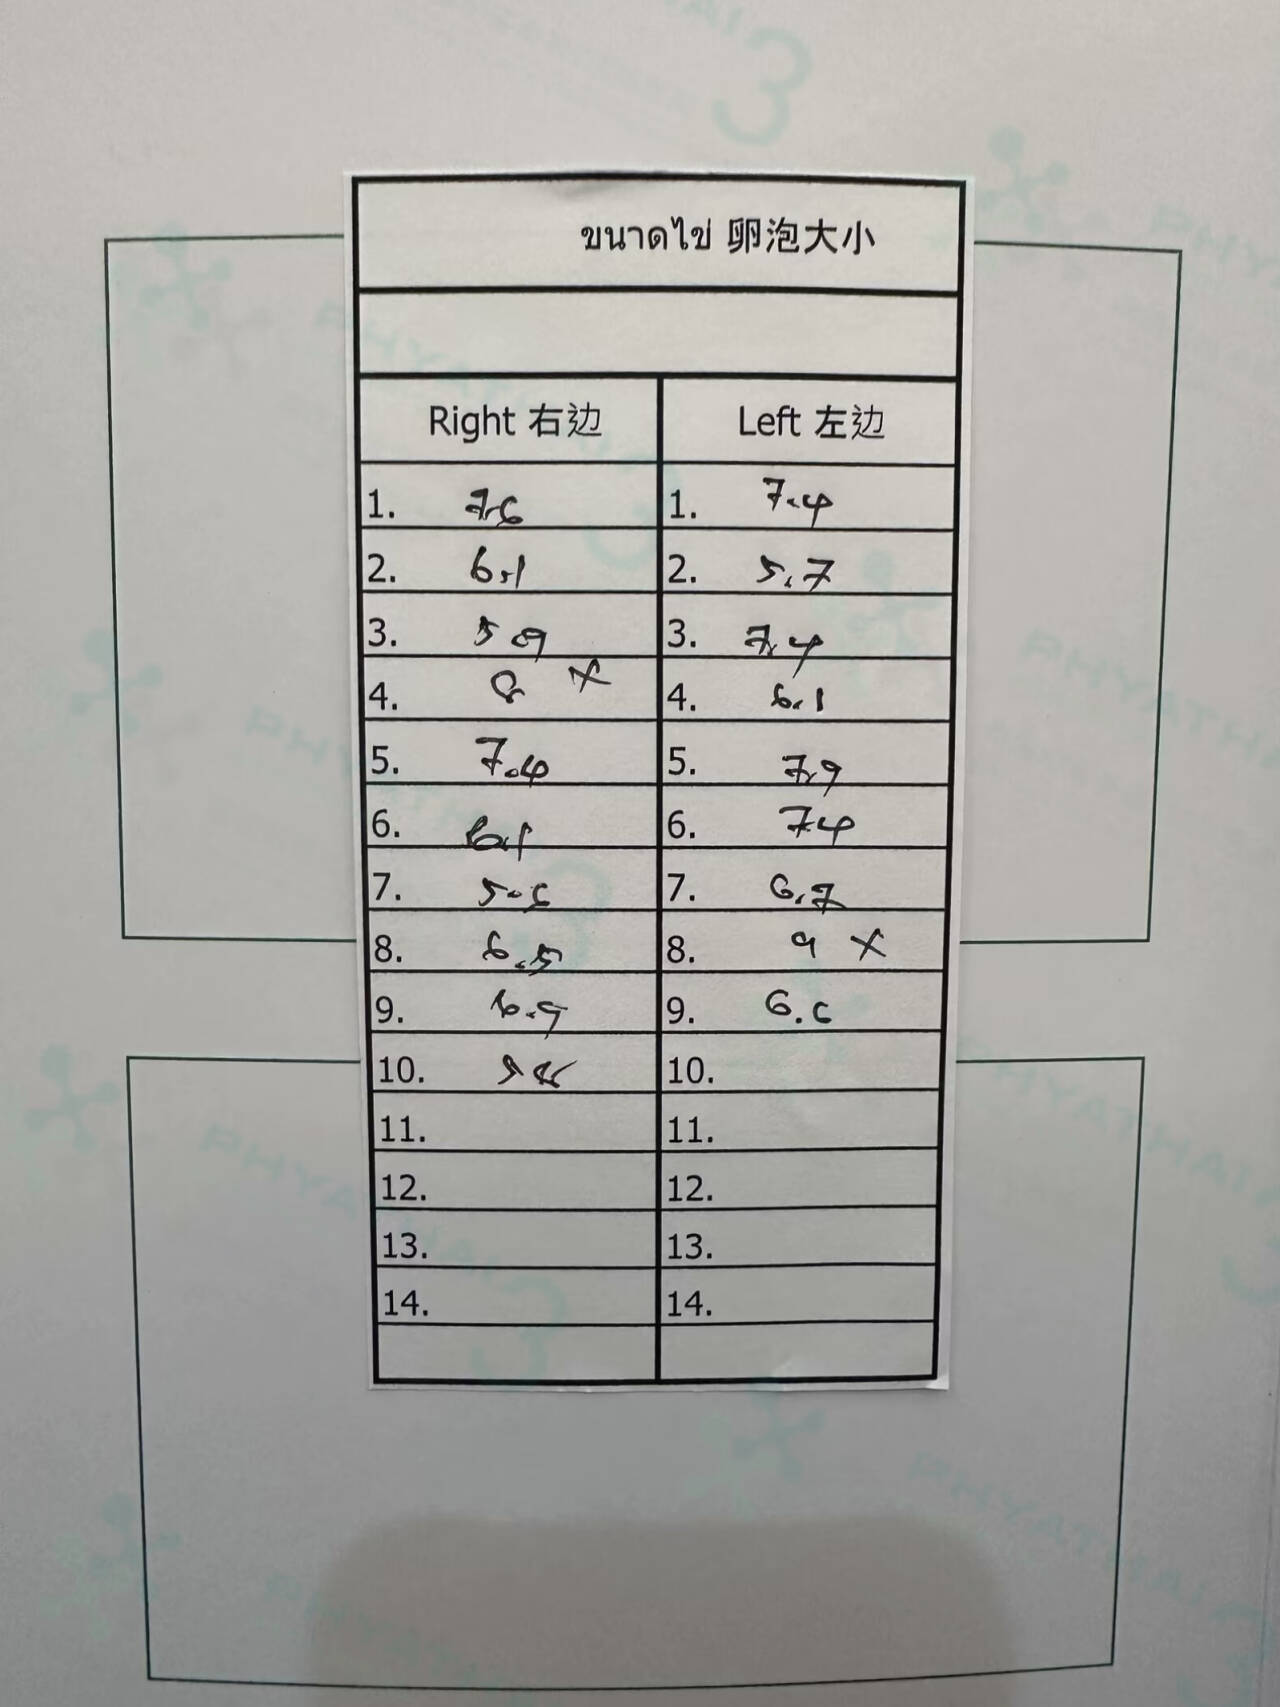 ขนาดไข่ 卵泡大小
Right 右边 Left 左边
1. 7.6 1. 7.4
2. 6.1 2. 5.7
3. 5.9 3. 7.4
4. 8 X 4. 6.1
5. 7.4 5. 7.9
6. 6.1 6. 7.4
7. 5.6 7. 6.7
8. 6.5 8. 9 X
9. 6.9 9. 6.6
10. 10.
11. 11.
12. 12.
13. 13.
14. 14.